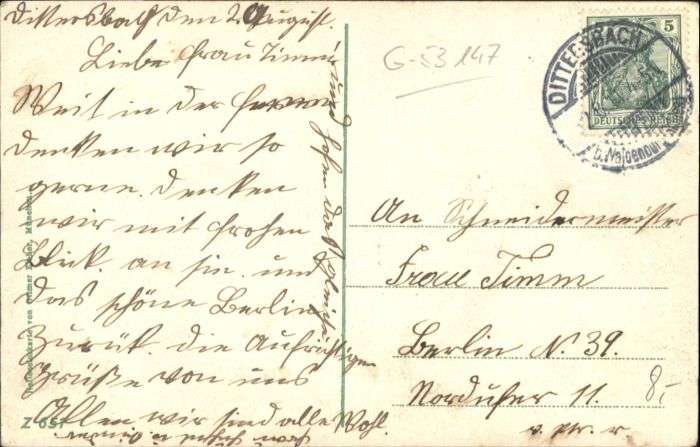 Dittersbach den 20 August.
Liebe Frau Timm
Weit in der
denken wir so
gerne. denken
wir mit frohen
Blick. an sie. und
das schöne Berlin
Zurük. die Aufrichtigen
Grüße von uns
Allen wir sind alle Wohl.
und hofen das
G-53 147
5
DEUTSCHES REICH
DITTERSBACH
An Schneidermeister
Frau Timm
Berlin N. 39.
Nordufer 11.
8,-
Z 651